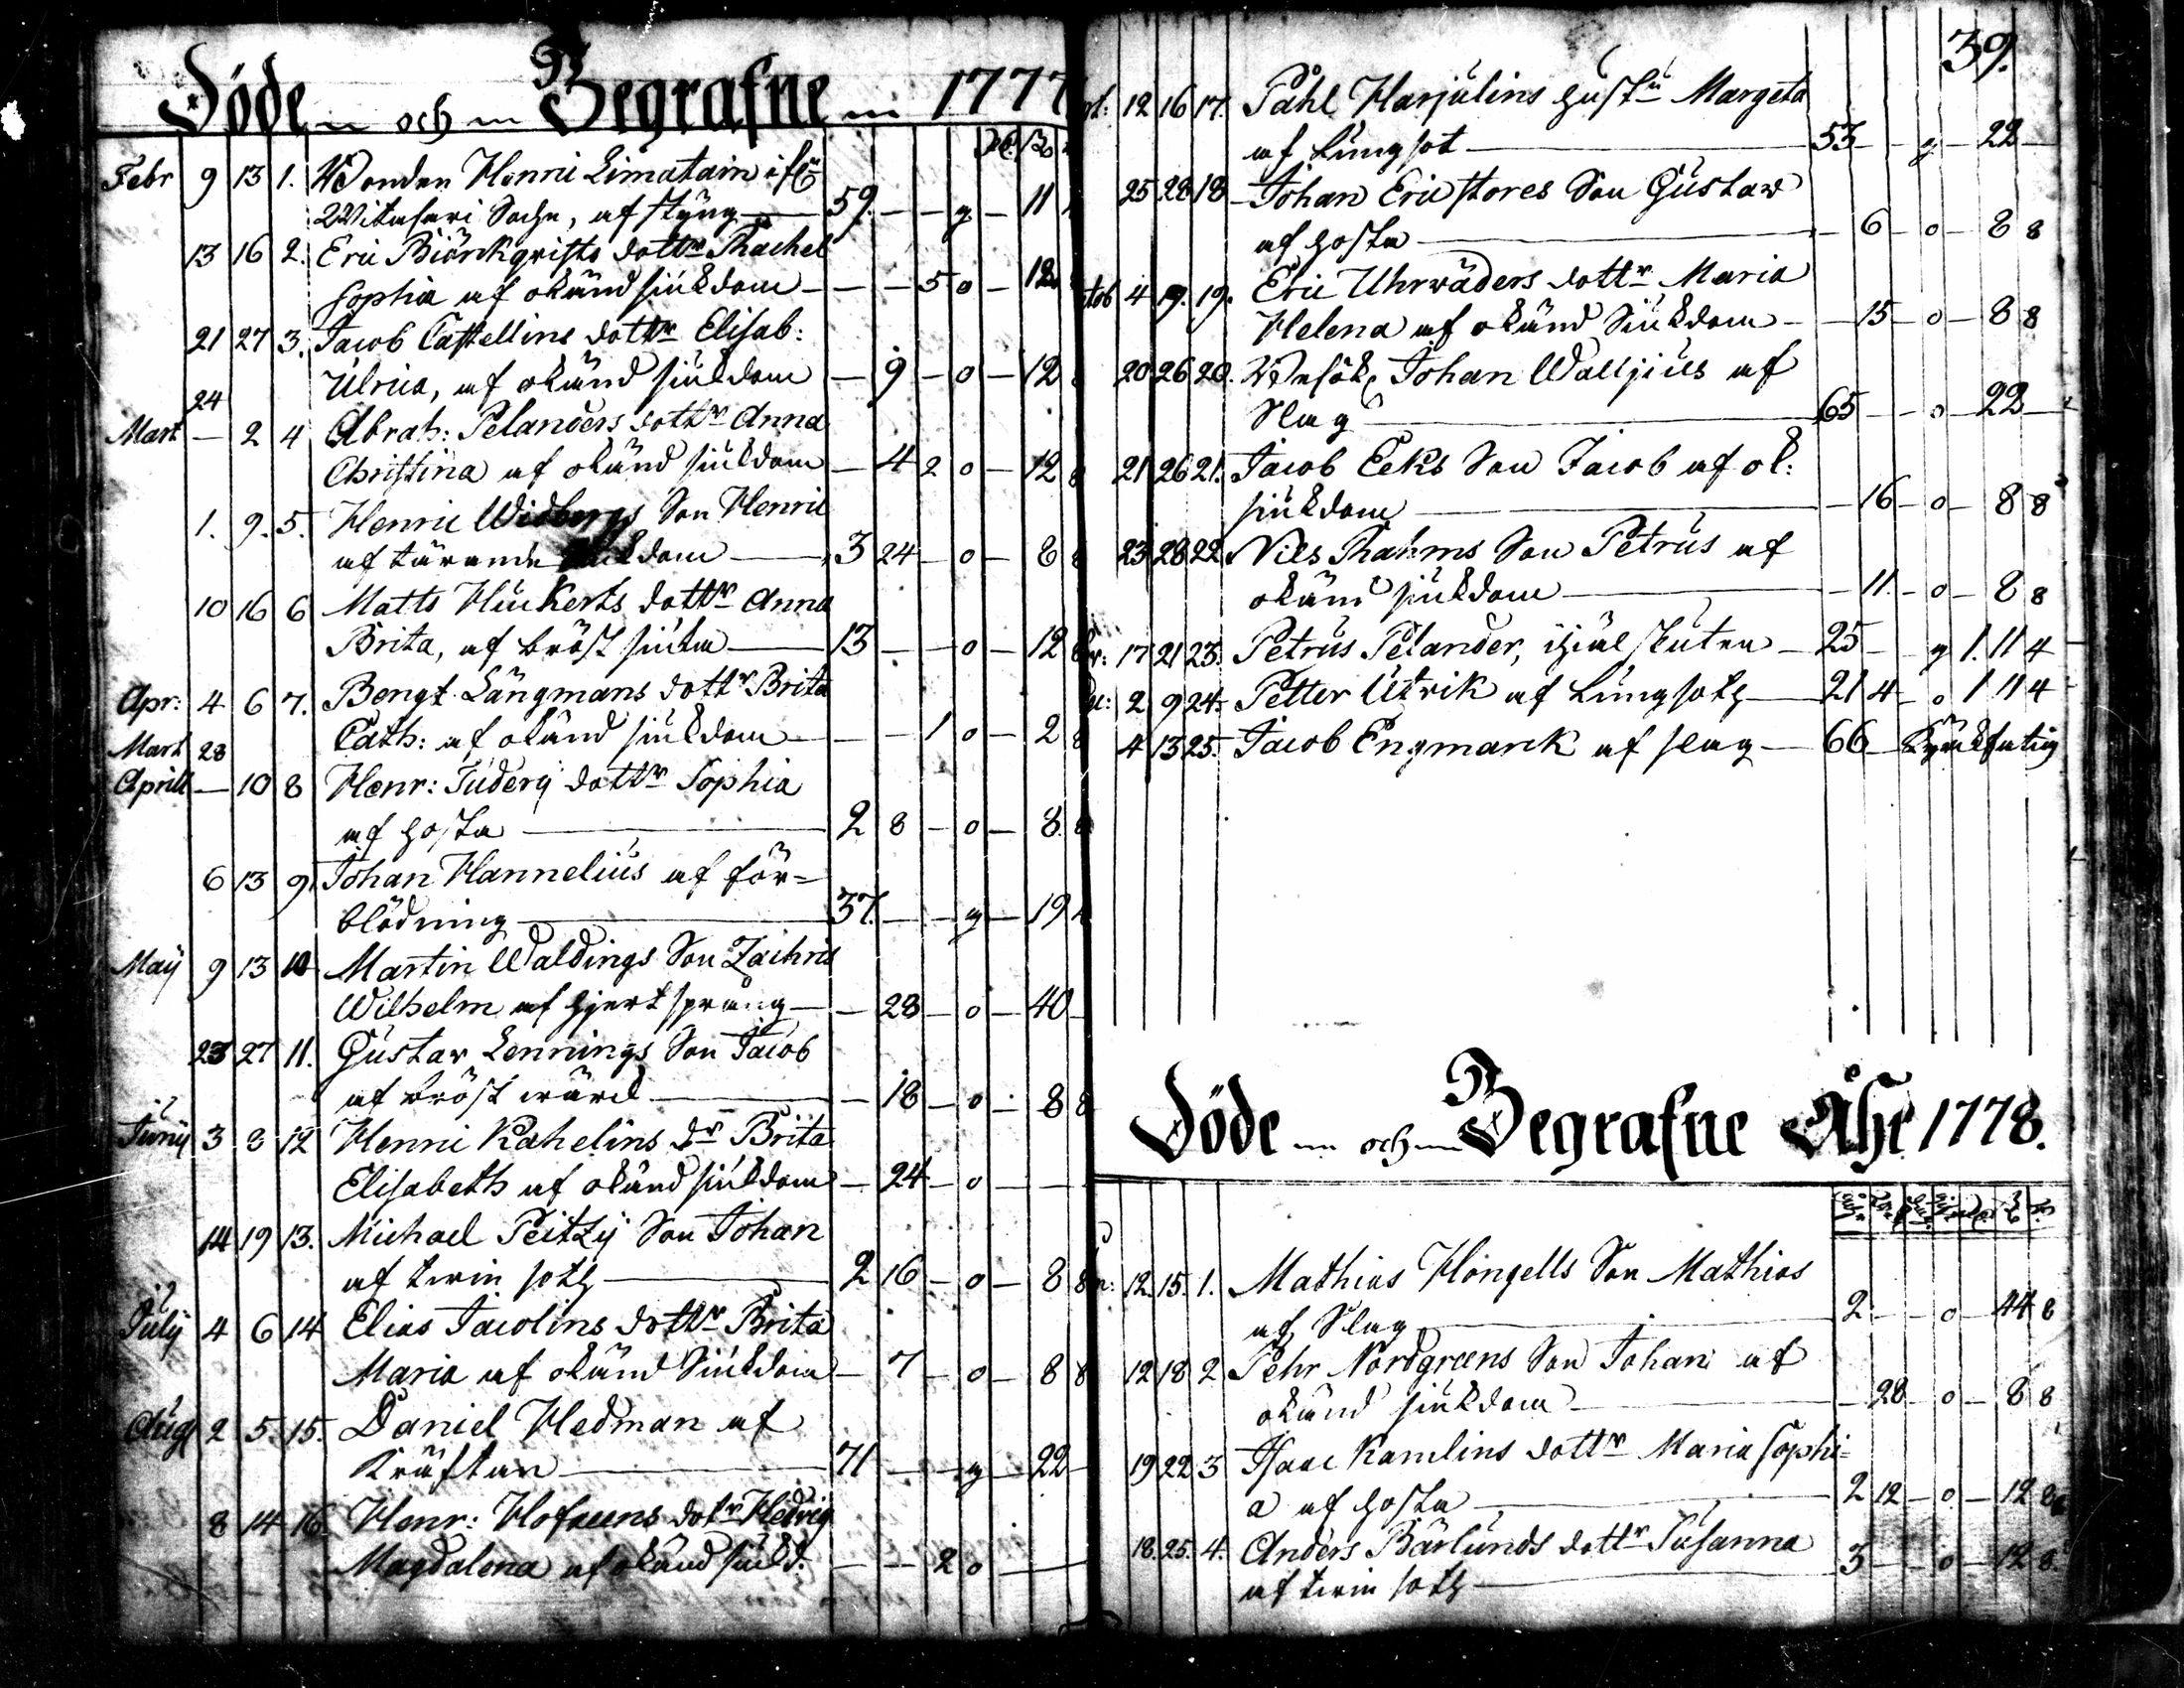 Döde och Begrafne 1777
Febr 9 13 1. Bonden Henric Limatain
Witasari Sochn, af styng 59. g 11
13 16 2. Eric Biörkqvists dottr Rachel
Sophia af okänd siukdom 5 o 12
21 27 3. Jacob Castellins dottr Elisab:
Ulrica, af okänd siukdom 9 o 12
24
Mart 2 4 Abrah: Pelanders dottr Anna
Christina af okänd siukdom 4 2 o 12 8
1. 9. 5. Henric Widbergs Son Henric
af tärande siukdom 3 24 o 8 8
10 16 6 Matts Huckerts dottr Anna
Brita, af bröst siuka 13 o 12
Apr: 4 6 7. Bengt Långmans dottr Brita
Cath: af okänd siukdom 1 o 2 8
Mart 28
Aprill 10 8 Henr: Juderij dottr Sophia
af hosta 2 8 o 8 8
6 13 9. Johan Hannelius af för=
blödning 37. g 19
Maij 9 13 10 Martin Waldings Son Zachris
Wilhelm af hjertsprång 28 o 40
23 27 11. Gustav Lennings Son Jacob
af bröst wärck 18 o 8 8
Junij 3 8 12 Henric Kahelins dr Brita
Elisabeth af okänd siukdom 24 o
14 19 13. Michael Peitzij Son Johan
af twin soth 2 16 o 8 8
Julij 4 6 14 Elias Jacolins dottr Brita
Maria af okänd Siukdom 7 o 8 8
Aug 2 5. 15. Daniel Hedman af
Kräftan 71 g 22
8 14 16. Henr: dotr Hedvig
Magdalena af okänd siukd. 2 o
39.
12 16 17. Påhl Harjulins hustru Margeta
af Lungsot 53 g 22
25 28 18 Johan Ericstores Son Gustaw
af hosta 6 o 8 8
4 19. 19. Eric Uhrwäders dottr Maria
Helena af okänd Siukdom 15 o 8 8
20 26 20. Johan Walljius af
Slag 65 o 22
21 26 21. Jacob Eeks Son Jacob af ok:
siukdom 16 o 8 8
23 28 22 Nils Rahms Son Petrus af
okänd siukdom 11. o 8 8
17 21 23. Petrus Pelander, ihjäl skuten 25 g 1. 11 4
2 9 24. Petter Utrik af Lungsoth 21 4 o 1 11 4
4 13 25. Jacob Engmarck af slag 66 Kyrckfatig
Döde och Begrafne Åhr 1778.
12. 15. 1. Mathias Hongells Son Mathias
af Slag 2 o 44 8
12 18 2 Pehr Nordgreens Son Johan af
okänd siukdom 28 o 8 8
19 22 3 Isaac Kamlins dottr Maria Sophi=
a af hosta 2 12 o 12 8
18. 25. 4. Anders Bärlunds dottr Susanna
af twin soth 3 o 12 8